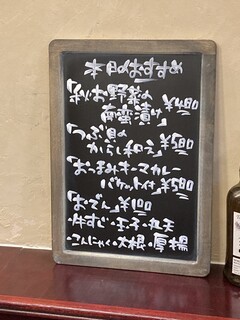 本日のおすすめ
「秋お野菜の
南蛮漬け」¥480
「つぶ貝の
からし和え」¥580
「おつまみキーマカレー
バケット付」¥580
「おでん」¥100
・牛すじ・玉子・丸天
・こんにゃく・大根・厚揚